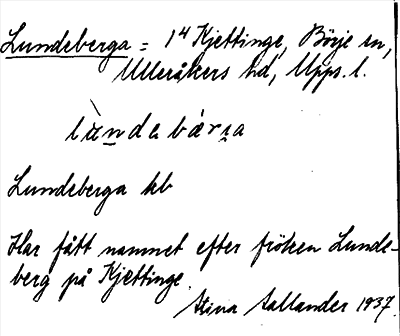 Lundeberga = 1⁴ Kjettinge, Börje sn,
Ulleråkers hd, Upps. l.
lùndebærɩa
Lundeberga kb
Har fått namnet efter fröken Lunde-
berg på Kjettinge.
Stina Sallander 1937.